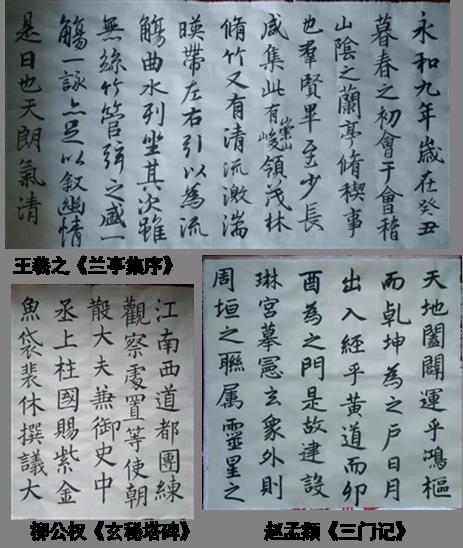 永和九年歲在癸丑
暮春之初會于會稽
山陰之蘭亭脩稧事
也羣賢畢至少長
咸集此有崇山峻領茂林
脩竹又有清流激湍
暎帶左右引以為流
觴曲水列坐其次雖
無絲竹管弦之盛一
觴一詠亦足以叙幽情
是日也天朗氣清
王羲之《兰亭集序》
江南西道都團練
觀察處置等使朝
散大夫兼御史中
丞上柱國賜紫金
魚袋裴休撰議大
柳公权《玄秘塔碑》
天地闔闢運乎鴻樞
而乹坤為之戶日月
出入經乎黃道而卯
酉為之門是故建設
琳宮摹憲玄象外則
周垣之聯属靈星之
赵孟頫《三门记》